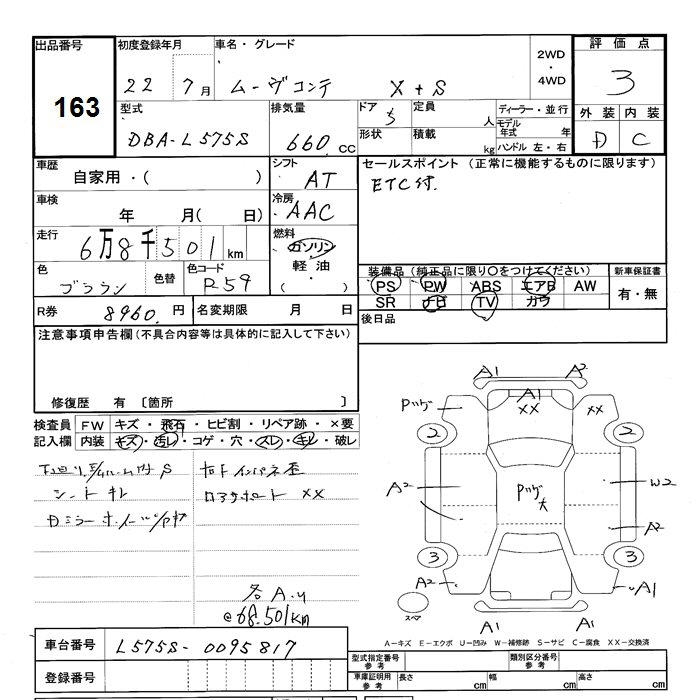 出品番号
163
初度登録年月
22 7月
車名・グレード
ムーヴコンテ X+S
2WD
4WD
評価点
3
外装 内装
D C
型式
DBA-L575S
排気量
660 CC
ドア 5
定員 人
形状
積載 kg
ディーラー・並行
モデル年式 年
ハンドル 左・右
車歴
自家用・( )
シフト
AT
セールスポイント (正常に機能するものに限ります)
ETC付
車検
年 月( 日)
冷房
AAC
走行
6万8千501km
燃料
ガソリン
軽油
( )
色
ブラウン
色替
色コード
R59
装備品(純正品に限り○をつけてください)
PS PW ABS エアB AW
SR ナビ TV カワ
新車保証書
有・無
R券 8960 円
名変期限 月 日
後日品
注意事項申告欄(不具合内容等は具体的に記入して下さい)
修復歴 有 〔箇所 〕
検査員記入欄
FW キズ・飛石・ヒビ割・リペア跡・×要
内装 キズ・汚レ・コゲ・穴・スレ・キレ・破レ
シートキレ
各A.U
@68.501km
A1 A2
A1
XX XX
2 2
A2
W2
A2
3 3
A2 A1
スペア
A1 A1
A-キズ E-エクボ U-凹み W-補修跡 S-サビ C-腐食 XX-交換済
車台番号 L575S-0095817
登録番号
型式指定番号 参考
類別区分番号 参考
車庫証明用 参考
長さ cm 幅 cm 高さ cm